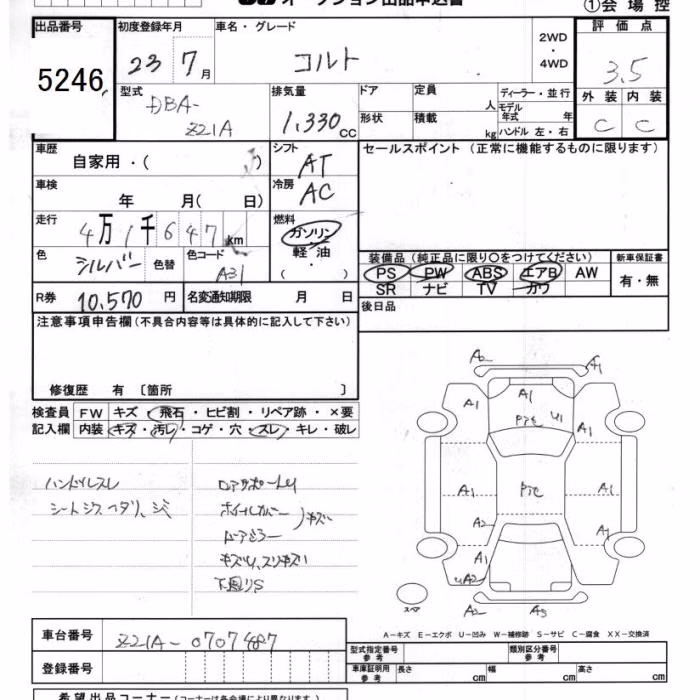 オークション出品申込書 ①会場控
出品番号 初度登録年月 車名・グレード 2WD・4WD 評価点
5246 23 7月 コルト 3.5
型式 排気量 ドア 定員 人 ディーラー・並行 外装 内装
DBA-Z21A 1,330cc 形状 積載 kg モデル年式 年 ハンドル 左・右 C C
車歴 シフト セールスポイント (正常に機能するものに限ります)
自家用・( ) AT
車検 年 月( 日) 冷房 AC
走行 4万1千647km 燃料 ガソリン 軽油・( )
色 シルバー 色替 色コード A31
装備品(純正品に限り○をつけてください) 新車保証書
PS PW ABS エアB AW 有・無
SR ナビ TV カワ
R券 10,570円 名変通知期限 月 日 後日品
注意事項申告欄(不具合内容等は具体的に記入して下さい)
修復歴 有 〔箇所 〕
検査員 FW キズ・飛石・ヒビ割・リペア跡・×要
記入欄 内装 キズ・汚レ・コゲ・穴・スレ・キレ・破レ
ハンドルスレ
シートシワ、ヘタリ、シミ
ホイールカバー キズ
ドアミラー
キズU、スリキズU
下廻りS
A2 A1
A1 A1 A1
U1
A1 A1
A2 A1
A1
UA2
A2 A3
スペア
A-キズ E-エクボ U-凹み W-補修跡 S-サビ C-腐食 XX-交換済
車台番号 Z21A-0707487
登録番号
型式指定番号 参考 類別区分番号 参考
車庫証明用 参考 長さ cm 幅 cm 高さ cm
希望出品コーナー(コーナーは各会場により異なります。)